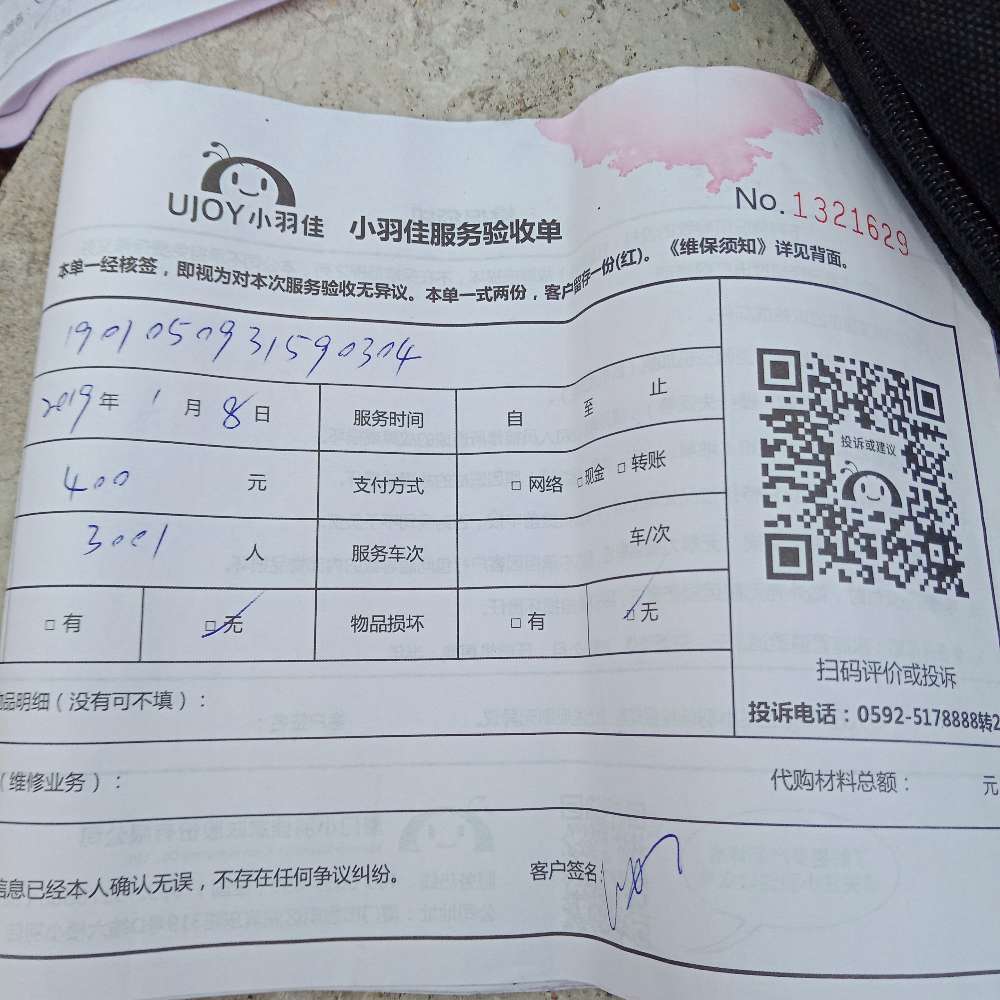 UJOY小羽佳 小羽佳服务验收单
No. 1321629
本单一经核签，即视为对本次服务验收无异议。本单一式两份，客户留存一份(红)。《维保须知》详见背面。
1901050931590304
2019年 1月 8日 服务时间 自 至 止
400 元 支付方式 □ 网络 □ 现金 □ 转账
3001 人 服务车次 车/次
□ 有 □ 无 物品损坏 □ 有 □ 无
投诉或建议
扫码评价或投诉
投诉电话：0592-5178888转2
品明细（没有可不填）：
（维修业务）： 代购材料总额： 元
信息已经本人确认无误，不存在任何争议纠纷。 客户签名: